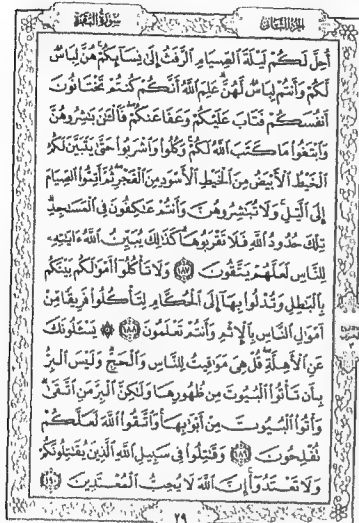 سورة البقرة
الجزء الثاني
أُحِلَّ لَكُمْ لَيْلَةَ ٱلصِّيَامِ ٱلرَّفَثُ إِلَىٰ نِسَآئِكُمْ هُنَّ لِبَاسٌ
لَّكُمْ وَأَنتُمْ لِبَاسٌ لَّهُنَّ عَلِمَ ٱللَّهُ أَنَّكُمْ كُنتُمْ تَخْتَانُونَ
أَنفُسَكُمْ فَتَابَ عَلَيْكُمْ وَعَفَا عَنكُمْ فَٱلْـَٰٔنَ بَٰشِرُوهُنَّ
وَٱبْتَغُوا۟ مَا كَتَبَ ٱللَّهُ لَكُمْ وَكُلُوا۟ وَٱشْرَبُوا۟ حَتَّىٰ يَتَبَيَّنَ لَكُمُ
ٱلْخَيْطُ ٱلْأَبْيَضُ مِنَ ٱلْخَيْطِ ٱلْأَسْوَدِ مِنَ ٱلْفَجْرِ ثُمَّ أَتِمُّوا۟ ٱلصِّيَامَ
إِلَى ٱلَّيْلِ وَلَا تُبَٰشِرُوهُنَّ وَأَنتُمْ عَٰكِفُونَ فِى ٱلْمَسَٰجِدِ
تِلْكَ حُدُودُ ٱللَّهِ فَلَا تَقْرَبُوهَا كَذَٰلِكَ يُبَيِّنُ ٱللَّهُ ءَايَٰتِهِۦ
لِلنَّاسِ لَعَلَّهُمْ يَتَّقُونَ ١٨٧ وَلَا تَأْكُلُوٓا۟ أَمْوَٰلَكُم بَيْنَكُم
بِٱلْبَٰطِلِ وَتُدْلُوا۟ بِهَآ إِلَى ٱلْحُكَّامِ لِتَأْكُلُوا۟ فَرِيقًا مِّنْ
أَمْوَٰلِ ٱلنَّاسِ بِٱلْإِثْمِ وَأَنتُمْ تَعْلَمُونَ ١٨٨ ۞ يَسْـَٔلُونَكَ
عَنِ ٱلْأَهِلَّةِ قُلْ هِىَ مَوَٰقِيتُ لِلنَّاسِ وَٱلْحَجِّ وَلَيْسَ ٱلْبِرُّ
بِأَن تَأْتُوا۟ ٱلْبُيُوتَ مِن ظُهُورِهَا وَلَٰكِنَّ ٱلْبِرَّ مَنِ ٱتَّقَىٰ
وَأْتُوا۟ ٱلْبُيُوتَ مِنْ أَبْوَٰبِهَا وَٱتَّقُوا۟ ٱللَّهَ لَعَلَّكُمْ
تُفْلِحُونَ ١٨٩ وَقَٰتِلُوا۟ فِى سَبِيلِ ٱللَّهِ ٱلَّذِينَ يُقَٰتِلُونَكُمْ
وَلَا تَعْتَدُوٓا۟ إِنَّ ٱللَّهَ لَا يُحِبُّ ٱلْمُعْتَدِينَ ١٩٠
٢٩